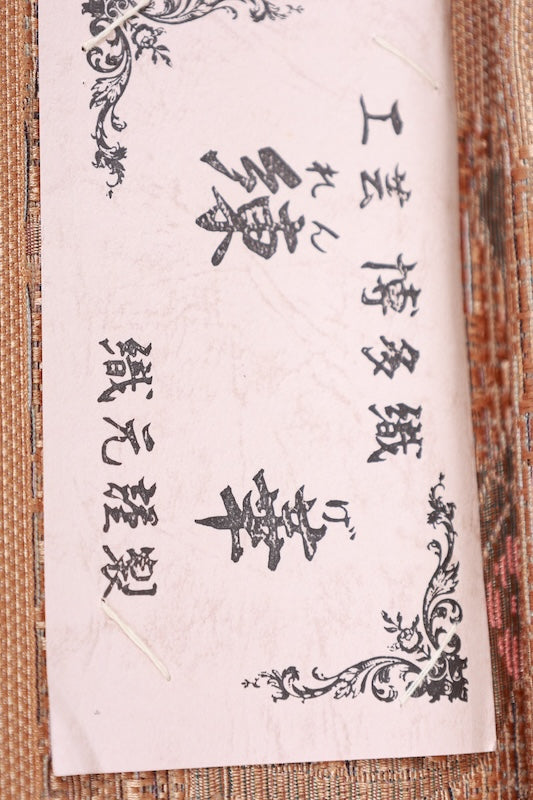 工芸 博多織
れん げ
練 華
織元謹製